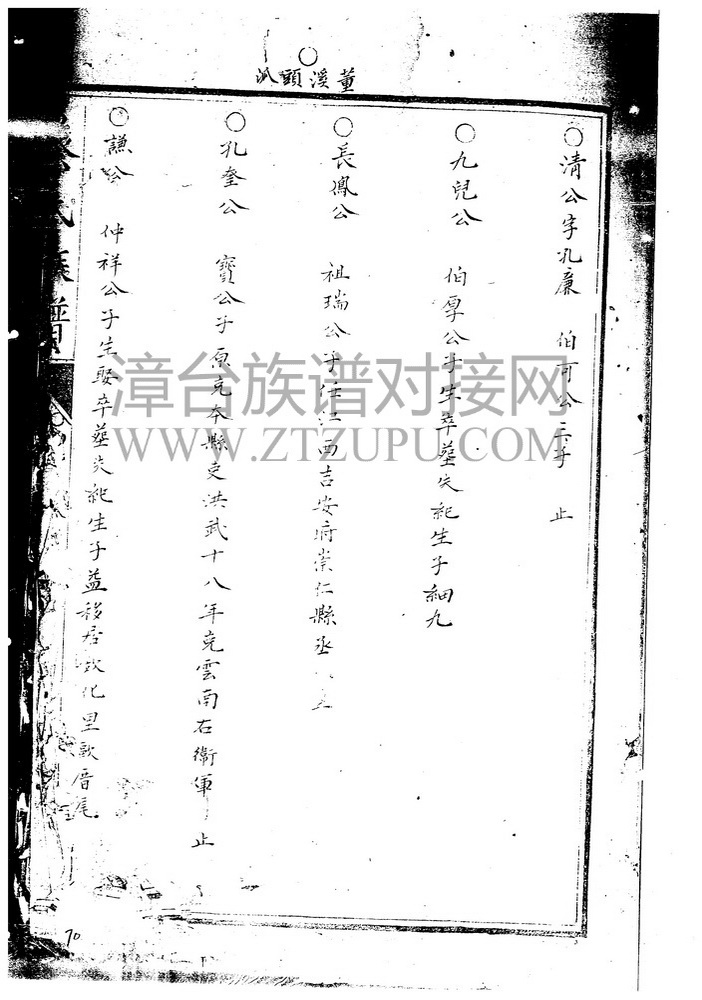 董溪頭派
○清公字孔廉 伯可公三子 止
○九兒公 伯厚公子生卒塟失紀生子細九
○長鳳公 祖瑞公子任江西吉安府崇仁縣丞 止
○孔奎公 寶公子原克本縣吏洪武十八年克雲南右衛軍 止
○謙公 仲祥公子生娶卒塟失紀生子益移居 化里歐厝尾
族譜
70
漳台族谱对接网
WWW.ZTZUPU.COM